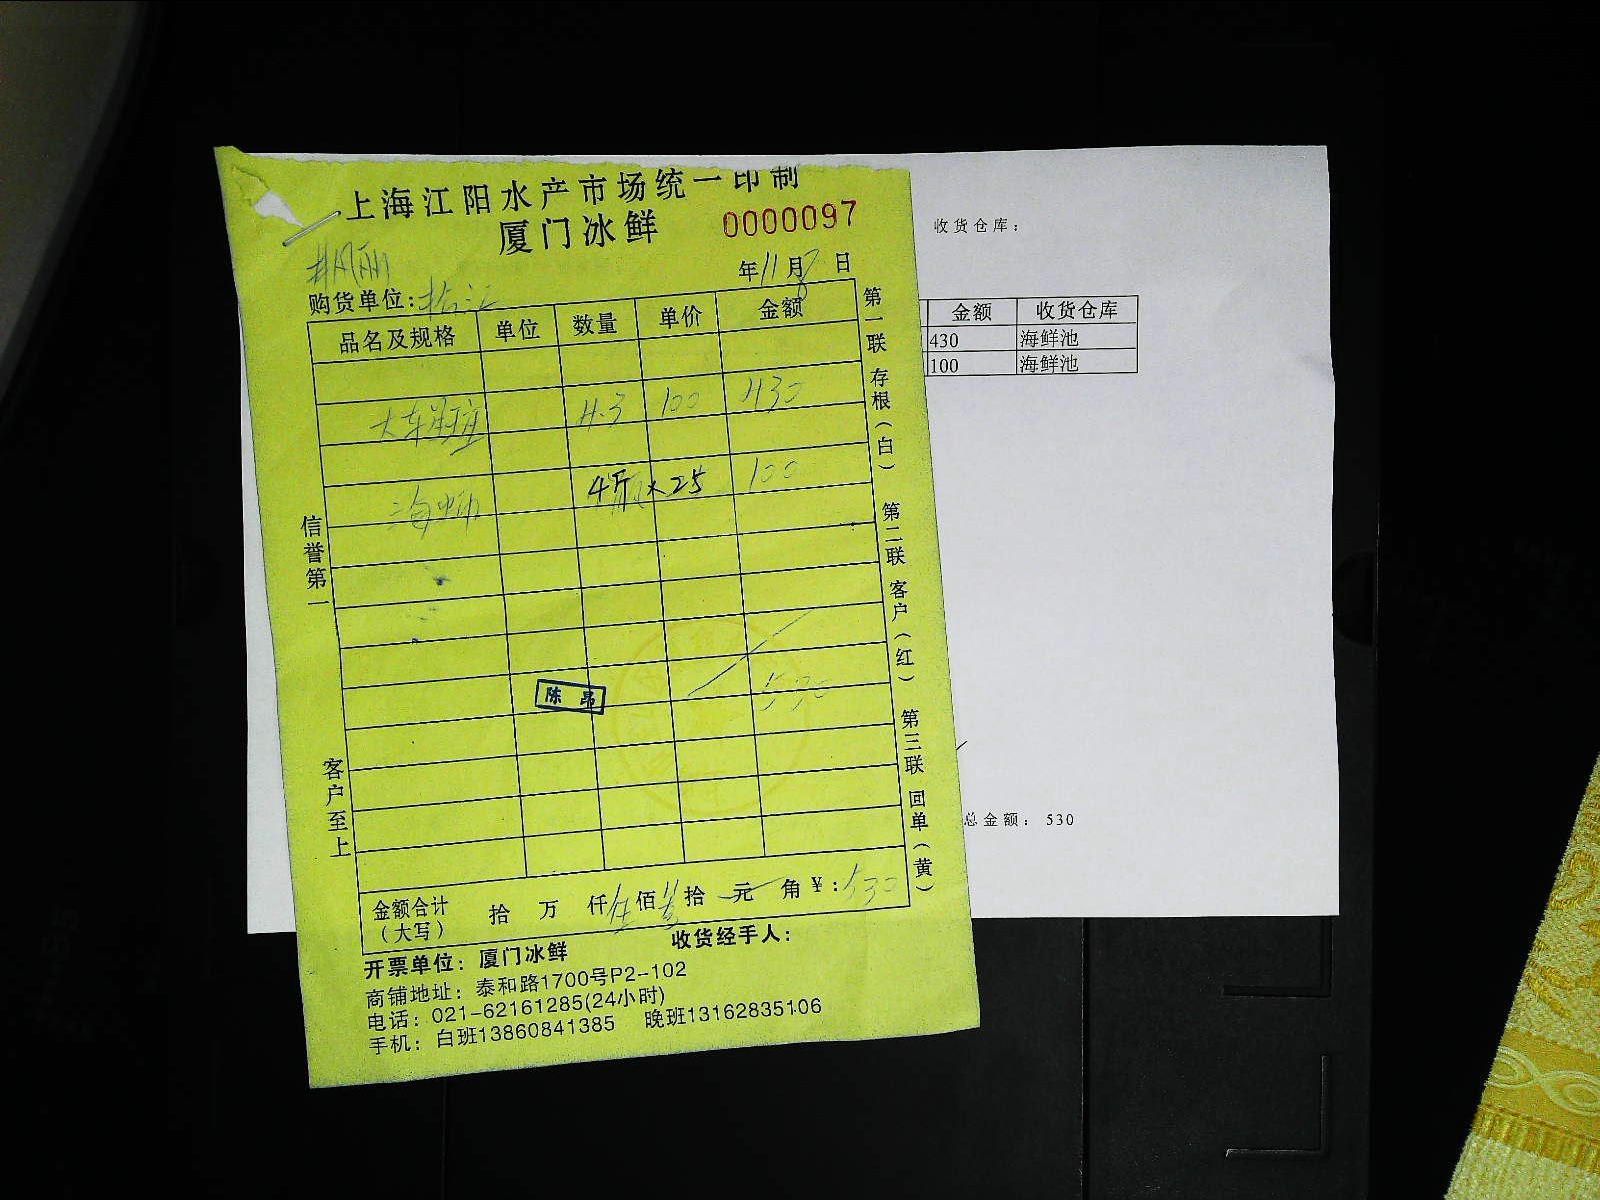 上海江阳水产市场统一印制
厦门冰鲜
0000097
年11月8日
购货单位:
品名及规格 单位 数量 单价 金额
大东星斑 4.3 100 430
4斤×25 100
530
陈昂
金额合计(大写) 拾 万 仟伍佰叁拾 元 角 ¥:530
开票单位: 厦门冰鲜 收货经手人:
商铺地址: 泰和路1700号P2-102
电话: 021-62161285(24小时)
手机: 白班13860841385 晚班13162835106
信誉第一
客户至上
第一联 存根(白)
第二联 客户(红)
第三联 回单(黄)
收货仓库:
金额 收货仓库
430 海鲜池
100 海鲜池
总金额: 530